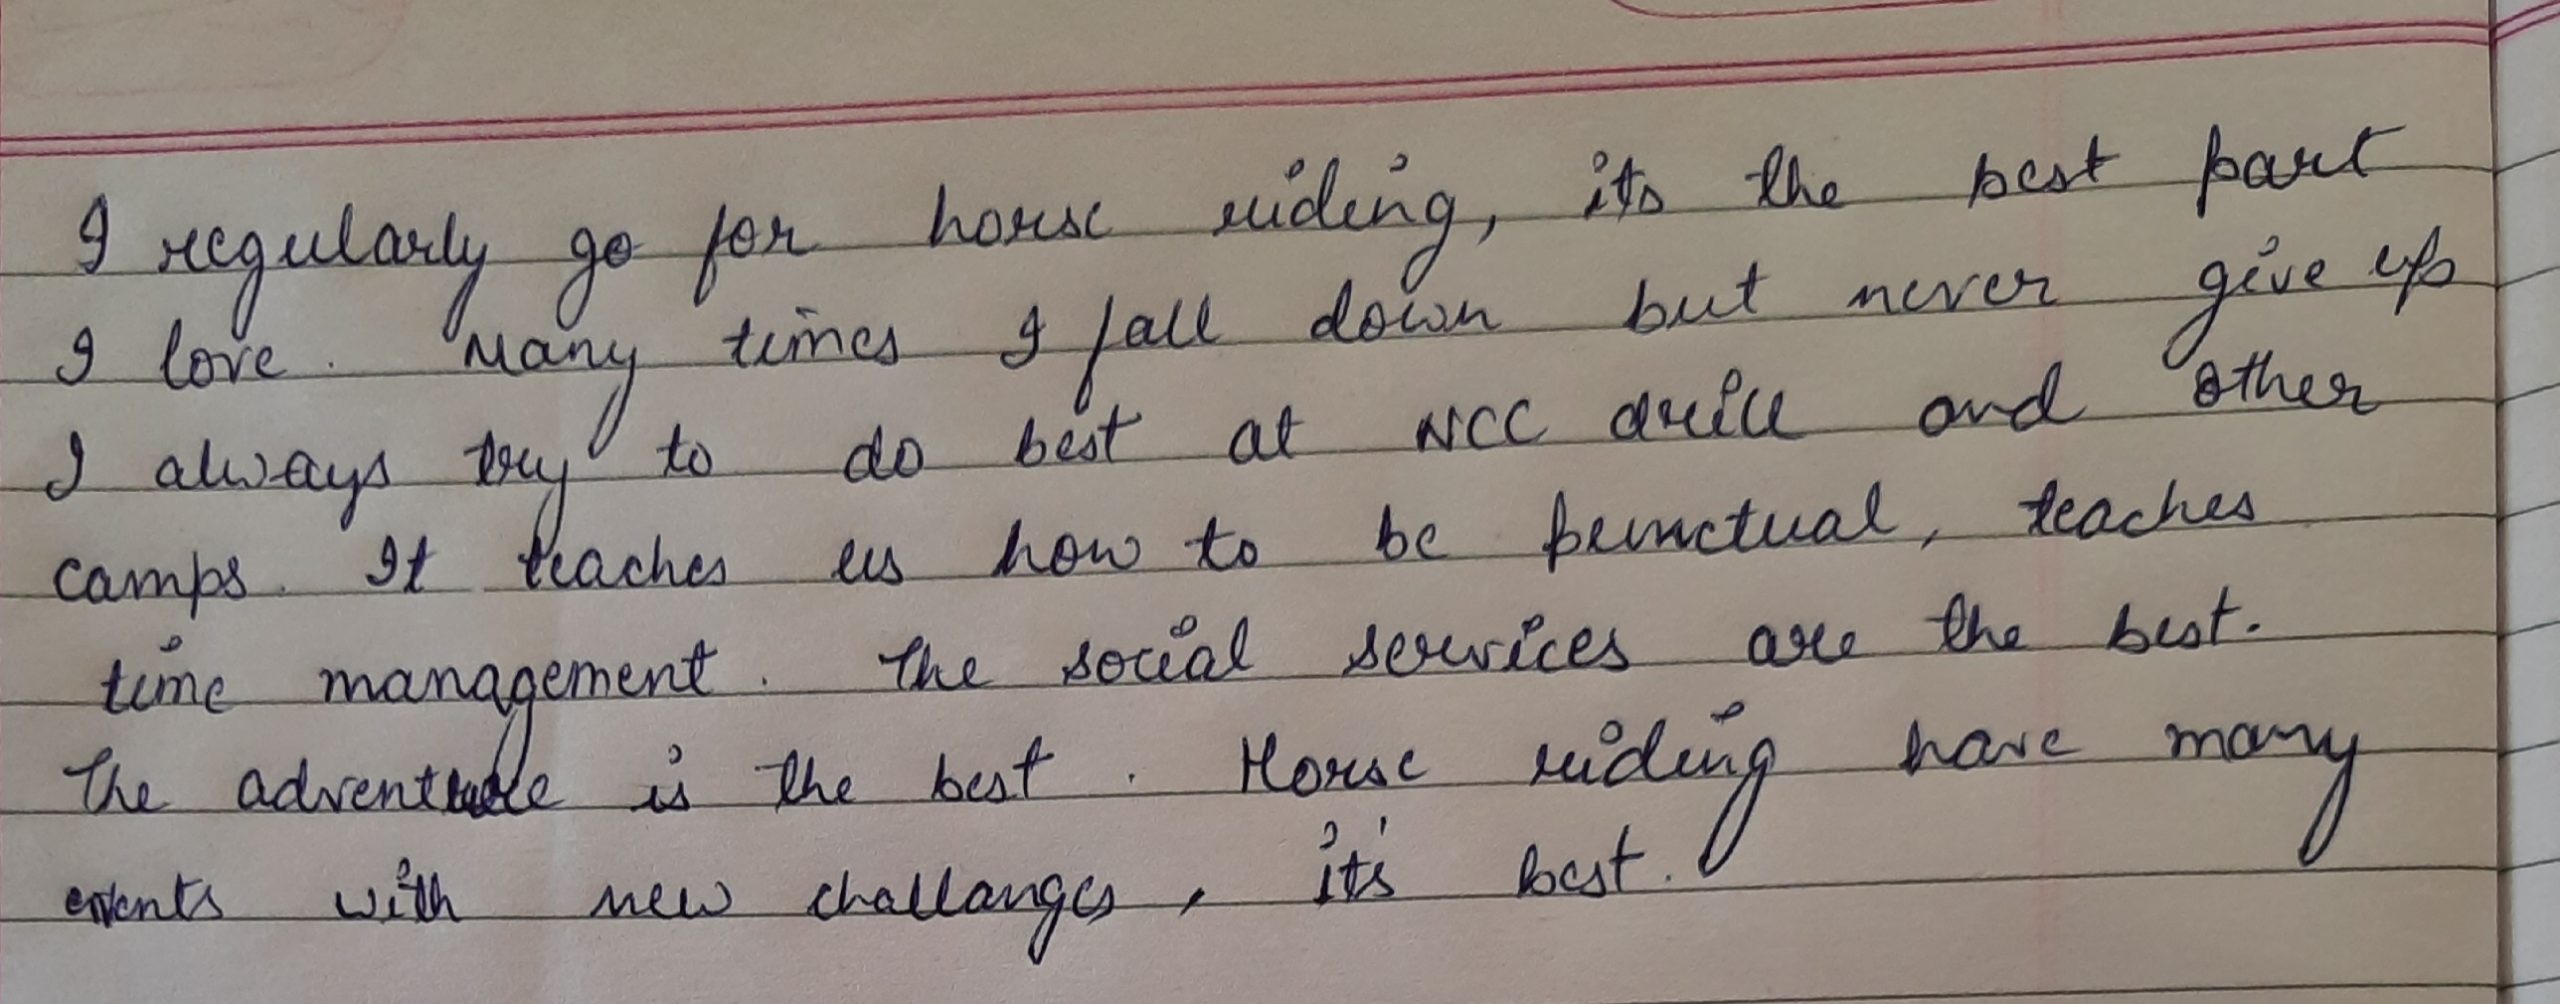 I regularly go for horse riding, its the best part
I love. Many times I fall down but never give up
I always try to do best at NCC drill and other
camps. It teaches us how to be punctual, teaches
time management. The social services are the best.
The adventure is the best. Horse riding have many
events with new challanges, it's best.